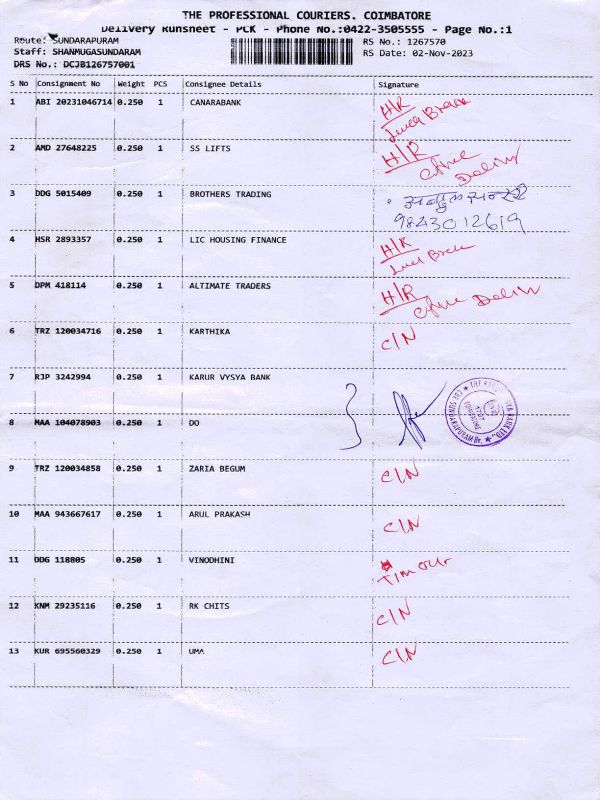 THE PROFESSIONAL COURIERS. COIMBATORE
Delivery Runsheet - PCK - Phone No.:0422-3505555 - Page No.:1
Route: SUNDARAPURAM
RS No.: 1267570
Staff: SHANMUGASUNDARAM
RS Date: 02-Nov-2023
DRS No.: DCJB126757001
S No Consignment No Weight PCS Consignee Details Signature
1 ABI 20231046714 0.250 1 CANARABANK H/R
2 AMD 27648225 0.250 1 SS LIFTS H/R
3 DDG 5015409 0.250 1 BROTHERS TRADING
9843012619
4 HSR 2893357 0.250 1 LIC HOUSING FINANCE H/R
5 DPM 418114 0.250 1 ALTIMATE TRADERS H/R
6 TRZ 120034716 0.250 1 KARTHIKA C/N
7 RJP 3242994 0.250 1 KARUR VYSYA BANK
8 MAA 104078903 0.250 1 DO
9 TRZ 120034858 0.250 1 ZARIA BEGUM C/N
10 MAA 943667617 0.250 1 ARUL PRAKASH C/N
11 DDG 118805 0.250 1 VINODHINI
12 KNM 29235116 0.250 1 RK CHITS C/N
13 KUR 695560329 0.250 1 UMA C/N